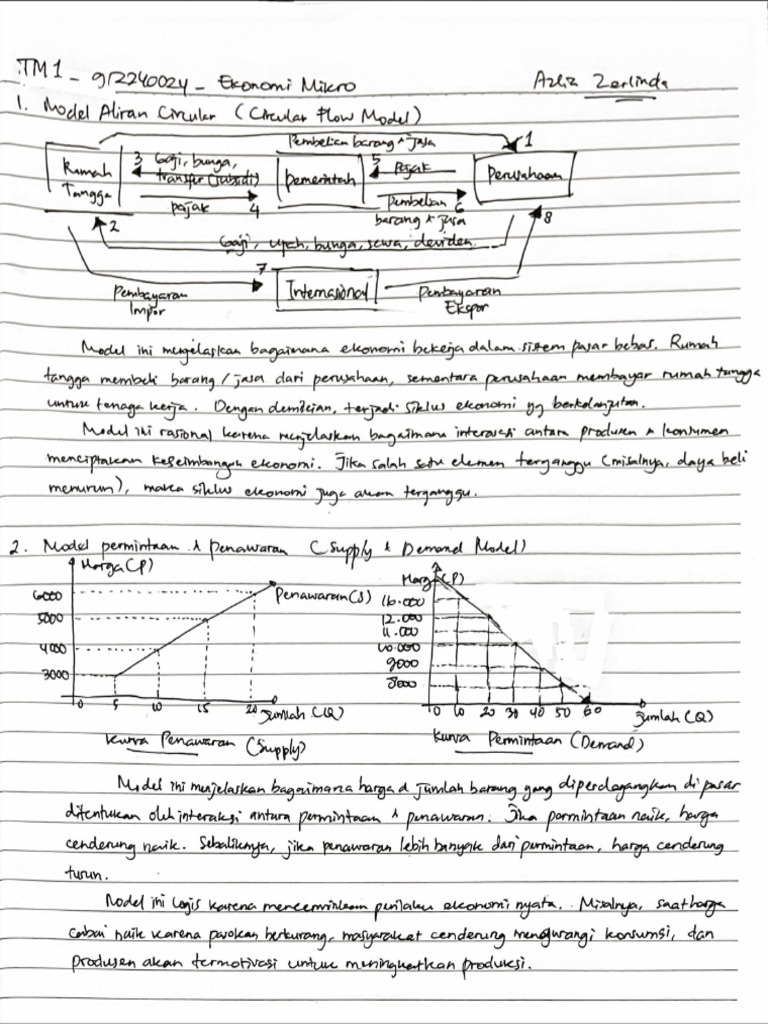 TM1 - 912240024 - Ekonomi Mikro
Azliz Zerlinda
1. Model Aliran Circular (Circular Flow Model)
Pembelian barang & jasa
1
Rumah Tangga
3 Gaji, bunga, transfer (subsidi)
pajak 4
pemerintah
5 Pajak
Pembelian 6 barang & jasa
Perusahaan
2
8
Gaji, upah, bunga, sewa, deviden
7
Pembayaran Impor
Internasional
Pembayaran Ekspor
Model ini menjelaskan bagaimana ekonomi bekerja dalam sistem pasar bebas. Rumah
tangga membeli barang/jasa dari perusahaan, sementara perusahaan membayar rumah tangga
untuk tenaga kerja. Dengan demikian, terjadi siklus ekonomi yg berkelanjutan.
Model ini rasional karena menjelaskan bagaimana interaksi antara produsen & konsumen
menciptakan keseimbangan ekonomi. Jika salah satu elemen terganggu (misalnya, daya beli
menurun), maka siklus ekonomi juga akan terganggu.
2. Model permintaan & penawaran (Supply & Demand Model)
Harga (P)
6000
5000
4000
3000
Penawaran (S)
0 5 10 15 20 Jumlah (Q)
Kurva Penawaran (Supply)
Harga (P)
16.000
12.000
11.000
10.000
9000
8000
0 10 20 30 40 50 60 Jumlah (Q)
Kurva Permintaan (Demand)
Model ini menjelaskan bagaimana harga & jumlah barang yang diperdagangkan di pasar
ditentukan oleh interaksi antara permintaan & penawaran. Jika permintaan naik, harga
cenderung naik. Sebaliknya, jika penawaran lebih banyak dari permintaan, harga cenderung
turun.
Model ini logis karena mencerminkan perilaku ekonomi nyata. Misalnya, saat harga
cabai naik karena pasokan berkurang, masyarakat cenderung mengurangi konsumsi, dan
produsen akan termotivasi untuk meningkatkan produksi.